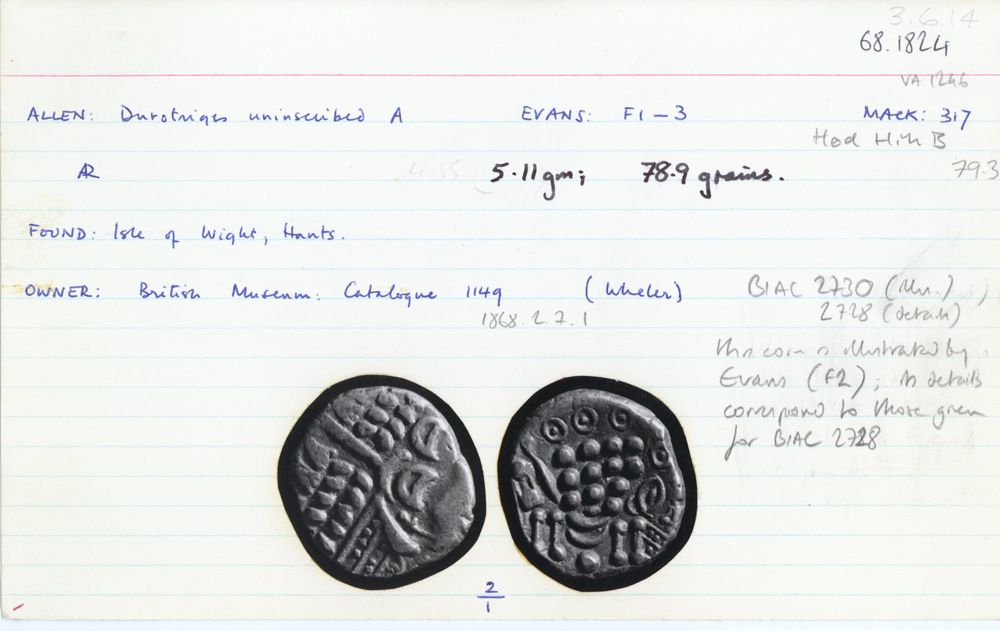 3.6.14
68.1824
VA 1246
ALLEN: Durotriges uninscribed A EVANS: F1 – 3 MACK: 317
Hod Hill B
AR 5.11 gm; 78.9 grains. 79.3
FOUND: Isle of Wight, Hants.
OWNER: British Museum: Catalogue 1149 (Wheler) BIAC 2730 (illn.)
1868. 2. 7. 1 2728 (details)
this coin is illustrated by
Evans (F2); its details
correspond to those given
for BIAC 2728
2
1